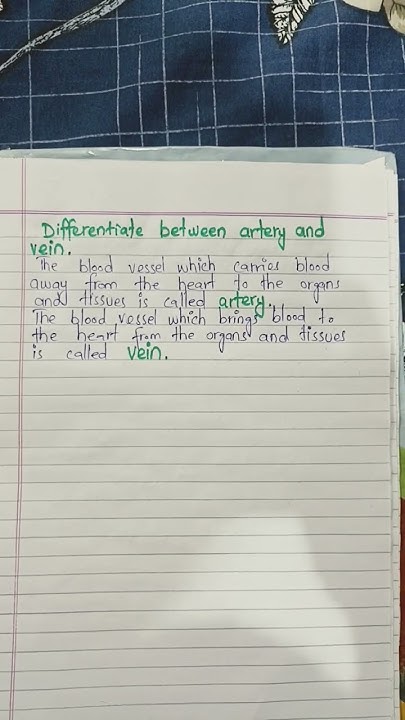 Differentiate between artery and
vein.
The blood vessel which carries blood
away from the heart to the organs
and tissues is called artery.
The blood vessel which brings blood to
the heart from the organs and tissues
is called vein.